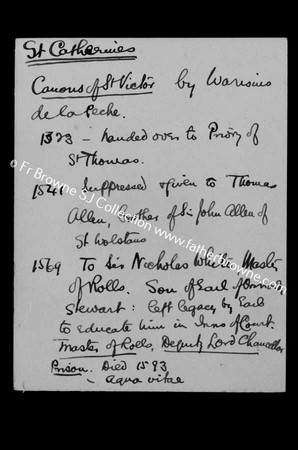 St Catherines
Canons of St Victor by Warisius
de la Peche.
1323 – handed over to Priory of
St Thomas.
1541 Suppressed & given to Thomas
Allen, brother of Sir John Allen of
St Wolstans
1569 To Sir Nicholas White, Master
of Rolls. Son of Earl of Ormonds
Stewart: left legacy by Earl
to educate him in Inns of Court.
Master of Rolls, Deputy Lord Chancellor
Prison. Died 1593
– Aqua vitae
© Fr Browne SJ Collection www.fatherbrowne.com